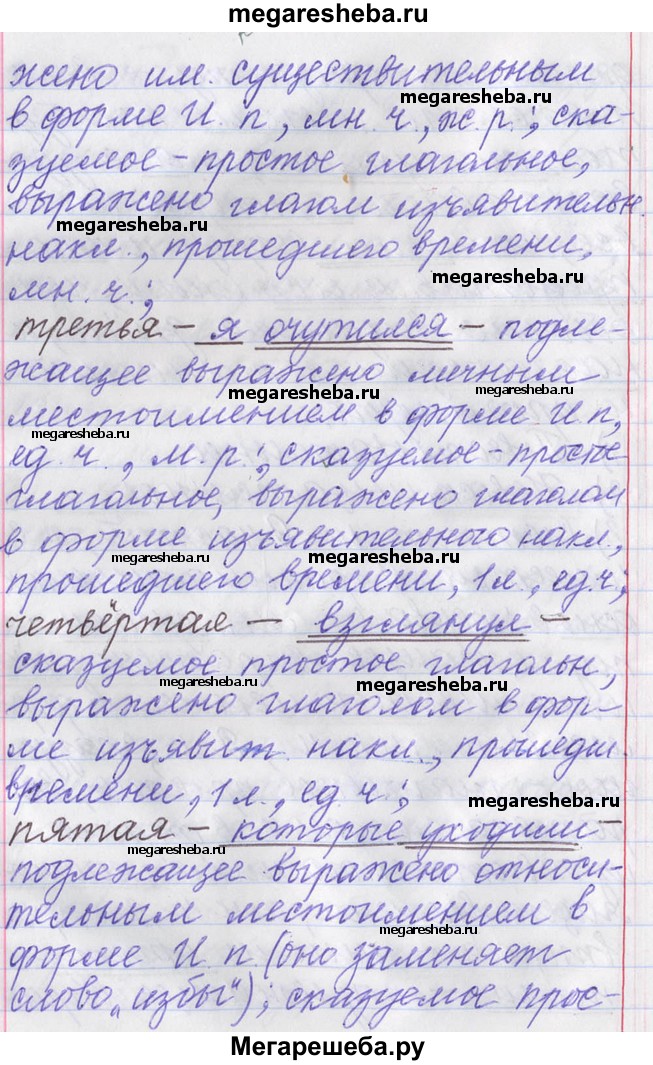 megaresheba.ru
жено им. существительным
megaresheba.ru
в форме И. п., мн. ч., ж. р.; ска-
зуемое - простое глагольное,
выражено глагол изъявительн.
megaresheba.ru
накл., прошедшего времени,
megaresheba.ru
мн. ч.;
третья - я очутился - подле-
жащее выражено личным
megaresheba.ru megaresheba.ru
местоимением в форме И. п.,
megaresheba.ru
ед. ч., м. р.; сказуемое - простое
глагольное, выражено глаголом
в форме изъявительного накл.,
megaresheba.ru megaresheba.ru
прошедшего времени, 1 л., ед. ч.;
четвёртая - взглянул -
сказуемое простое глагольн.,
megaresheba.ru megaresheba.ru
выражено глаголом в фор-
ме изъявит. накл., прошедш.
времени, 1 л., ед. ч.;
megaresheba.ru
пятая - которые уходили -
megaresheba.ru
подлежащее выражено относи-
тельным местоимением в
megaresheba.ru
форме И. п. (оно заменяет
слово „избы"); сказуемое прос-
megaresheba.ru
Мегарешеба.ру